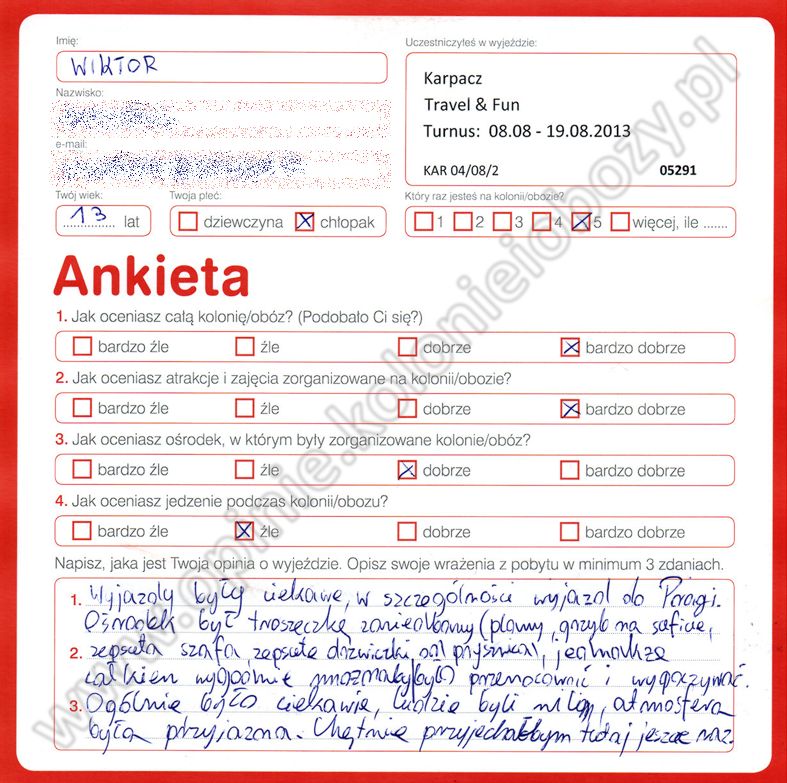 Imię:
WIKTOR
Nazwisko:
e-mail:
Uczestniczyłeś w wyjeździe:
Karpacz
Travel & Fun
Turnus: 08.08 - 19.08.2013
KAR 04/08/2 05291
Twój wiek:
13 lat
Twoja płeć:
dziewczyna chłopak
Który raz jesteś na kolonii/obozie?
1 2 3 4 5 więcej, ile .......
Ankieta
1. Jak oceniasz całą kolonię/obóz? (Podobało Ci się?)
bardzo źle źle dobrze bardzo dobrze
2. Jak oceniasz atrakcje i zajęcia zorganizowane na kolonii/obozie?
bardzo źle źle dobrze bardzo dobrze
3. Jak oceniasz ośrodek, w którym były zorganizowane kolonie/obóz?
bardzo źle źle dobrze bardzo dobrze
4. Jak oceniasz jedzenie podczas kolonii/obozu?
bardzo źle źle dobrze bardzo dobrze
Napisz, jaka jest Twoja opinia o wyjeździe. Opisz swoje wrażenia z pobytu w minimum 3 zdaniach.
1. Wyjazdy były ciekawe, w szczególności wyjazd do Paragi.
Ośrodek był troszeczkę zaniedbany (plamy, grzyb na suficie,
2. zepsuta szafa, zepsute drzwiczki od prysznica), jednakże
całkien wygodnie można było przenocować i wypoczywać.
3. Ogólnie było ciekawie, ludzie byli mili, atmosfera
była przyjazna. Chętnie przyjechałbym tutaj jeszcze raz.
www.opinie.kolonieiobozy.pl